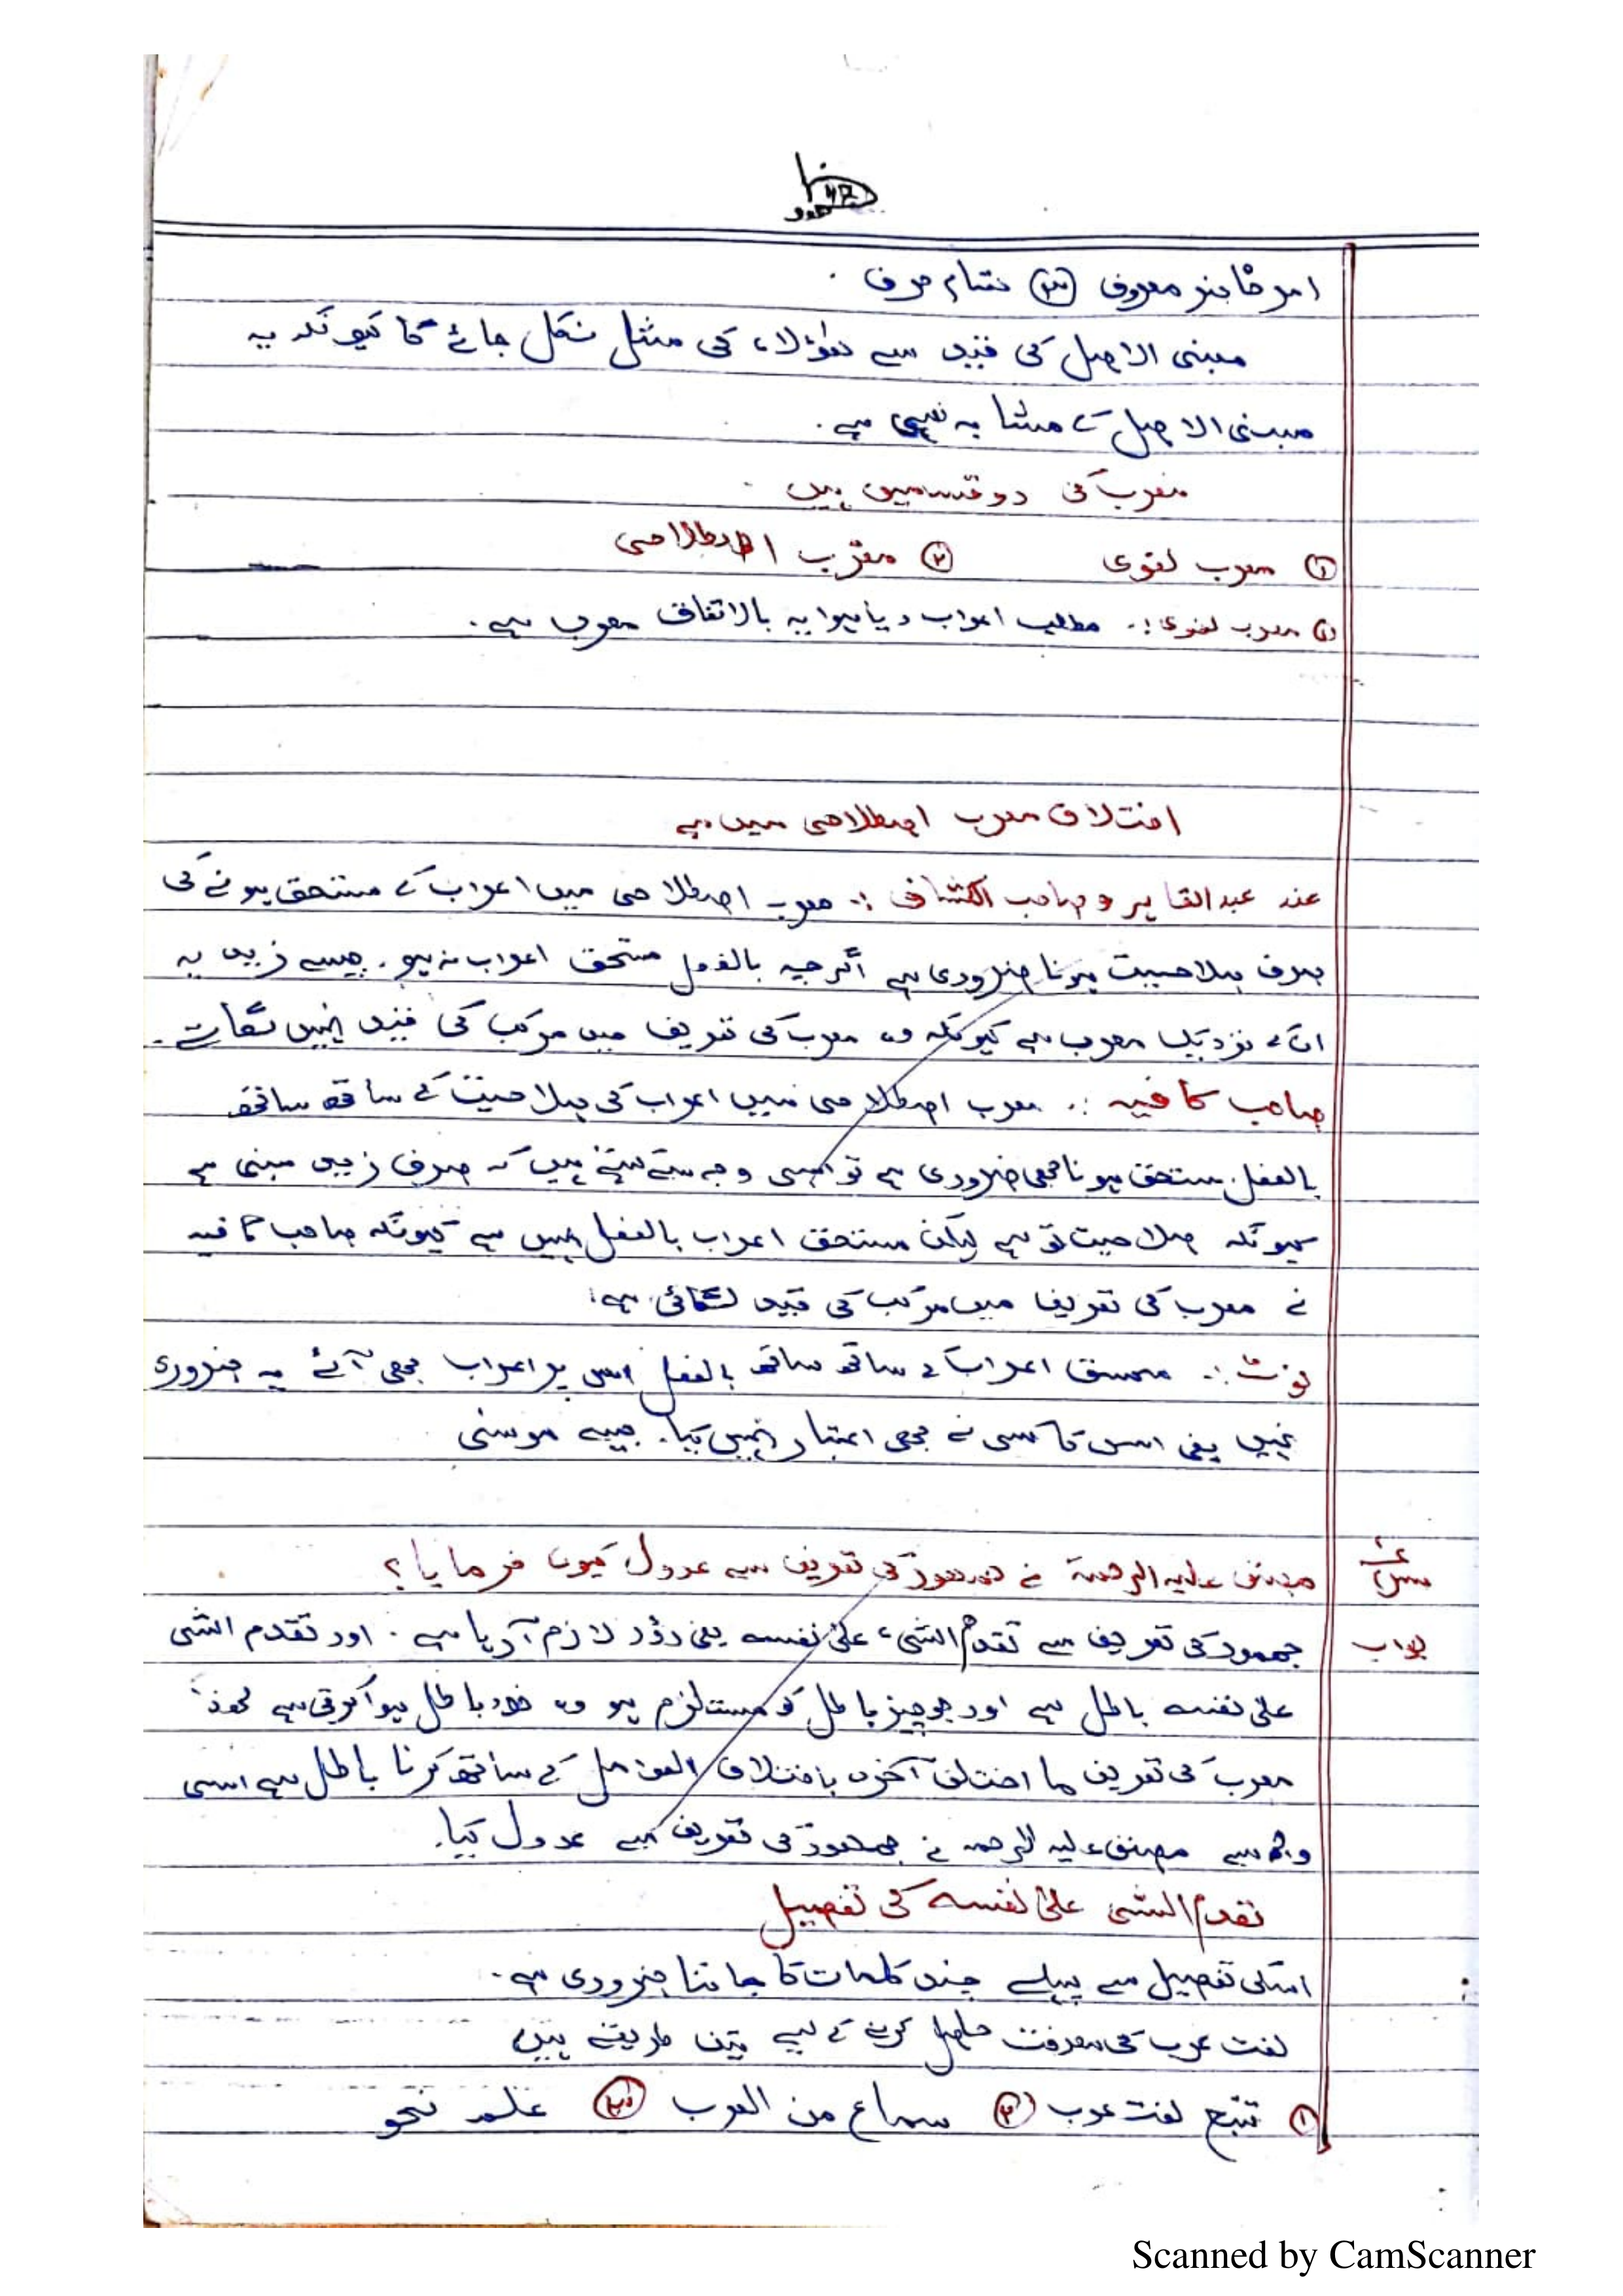 امر حاضر معروف (۳) تمام حرف .
مبنی الاصل کی قید سے ھؤلاء کی مثل نکل جائے گا کیونکہ یہ
مبنی الاصل کے مشابہ نہیں ہے .
معرب کی دو قسمیں ہیں
① معرب لغوی ② معرب اصطلاحی
① معرب لغوی :. مطلب اعراب دیا ہوا یہ بالاتفاق معرب ہے .
اختلاف معرب اصطلاحی میں ہے
عند عبد القاہر و صاحب الکشاف :. معرب اصطلاحی میں اعراب کے مستحق ہونے کی
صرف صلاحیت ہونا ضروری ہے اگرچہ بالفعل مستحق اعراب نہ ہو . جیسے زید یہ
ان کے نزدیک معرب ہے کیونکہ وہ معرب کی تعریف میں مرکب کی قید نہیں لگاتے .
صاحب کافیہ :. معرب اصطلاحی میں اعراب کی صلاحیت کے ساتھ ساتھ
بالفعل مستحق ہونا بھی ضروری ہے تو اسی وجہ سے ہیں کہ صرف زید مبنی ہے
کیونکہ صلاحیت تو ہے لیکن مستحق اعراب بالفعل نہیں ہے کیونکہ صاحب کافیہ
نے معرب کی تعریف میں مرکب کی قید لگائی ہے
نوٹ :. اعراب کے ساتھ ساتھ بالفعل اس پر اعراب بھی آئے یہ ضروری
نہیں یعنی اس کا کسی نے بھی اعتبار نہیں کیا . جیسے موسیٰ
س مصنف علیہ الرحمۃ نے جمہور کی تعریف سے عدول کیوں فرمایا ؟
جواب جمہور کی تعریف سے تقدم الشیء علیٰ نفسہ یعنی دَوْر لازم آ رہا ہے . اور تقدم الشی
علیٰ نفسہ باطل ہے اور جو چیز باطل کو مستلزم ہو وہ خود باطل ہوا کرتی ہے لھذا
معرب کی تعریف ما اختلف آخرہ باختلاف العوامل کے ساتھ کرنا باطل ہے اسی
وجہ سے مصنف علیہ الرحمہ نے جمہور کی تعریف سے عدول کیا .
تقدم الشی علیٰ نفسہ کی تفصیل
اسکی تفصیل سے پہلے چند کلمات کا جاننا ضروری ہے .
لغت عرب کی معرفت حاصل کرنے کے لیے تین طریقے ہیں
① تتبع لغت عرب ② سماع من العرب ③ علم نحو
Scanned by CamScanner